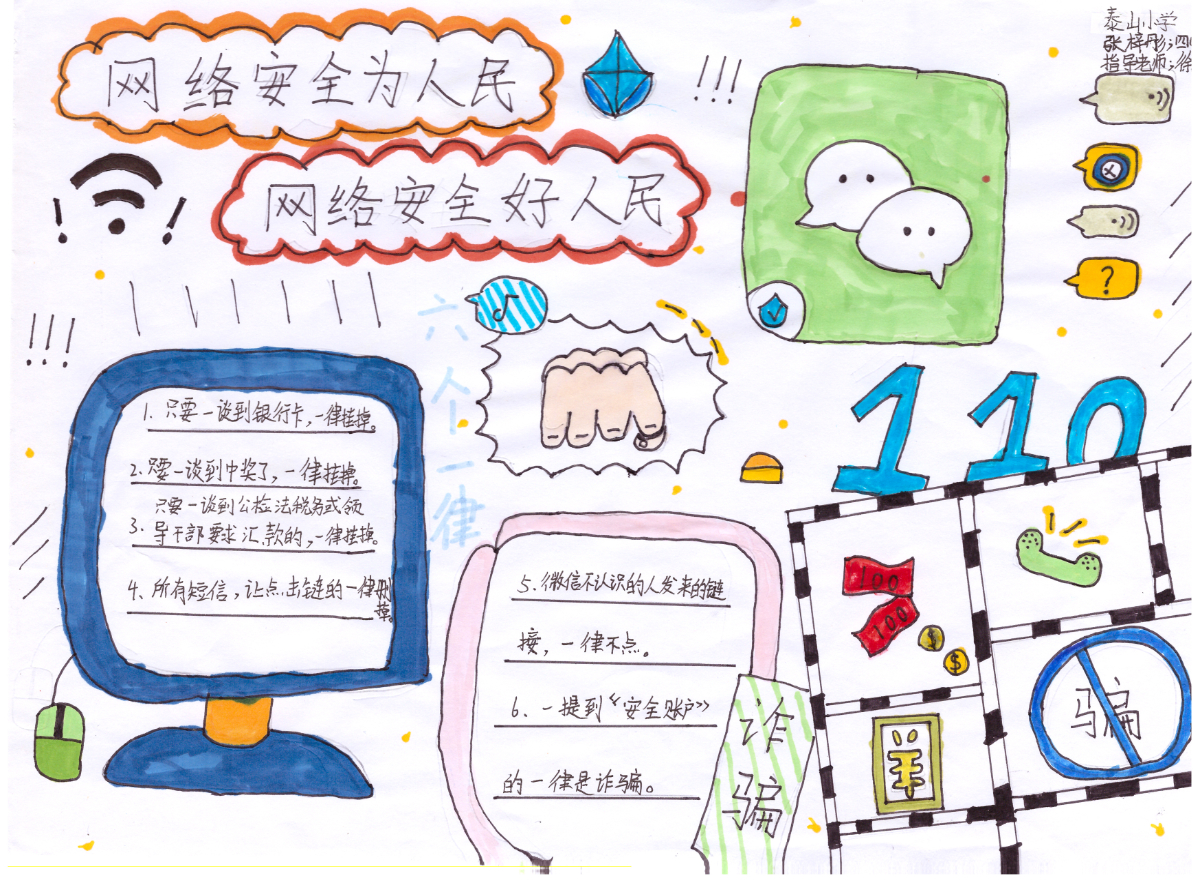 泰山小学
张梓彤;四
指导老师;徐
网络安全为人民
网络安全好人民
!!!
!!!
?
六个一律
1、只要一谈到银行卡,一律挂掉。
2、只要一谈到中奖了,一律挂掉。
只要一谈到公检法税务或领
3、导干部要求汇款的,一律挂掉。
4、所有短信,让点击链的一律删
掉。
5、微信不认识的人发来的链
接,一律不点。
6、一提到“安全账户”
的一律是诈骗。
诈骗
110
100
100
$
$
骗